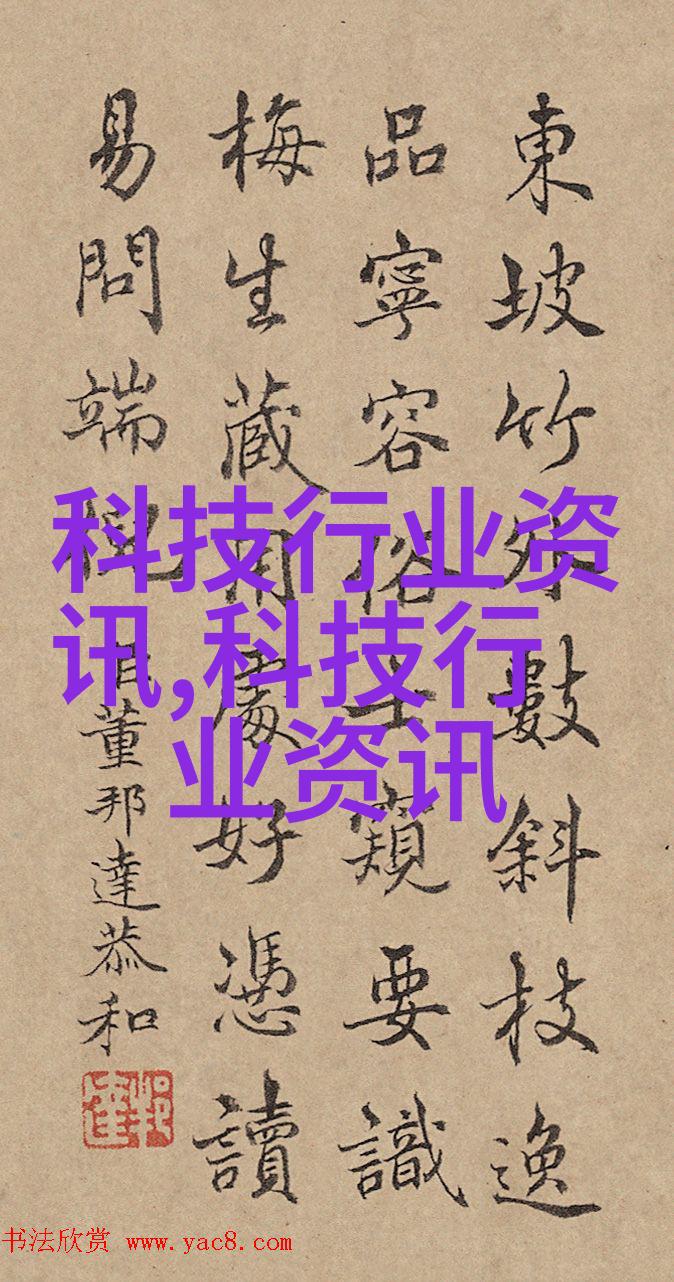 東坡竹外數斜枝逸
品寧容俗士窺要識
梅生藏用處好憑讀
易問端倪 臣董邦達恭和
科技行业资
讯,科技行
业资讯
书法欣赏 www.yac8.com